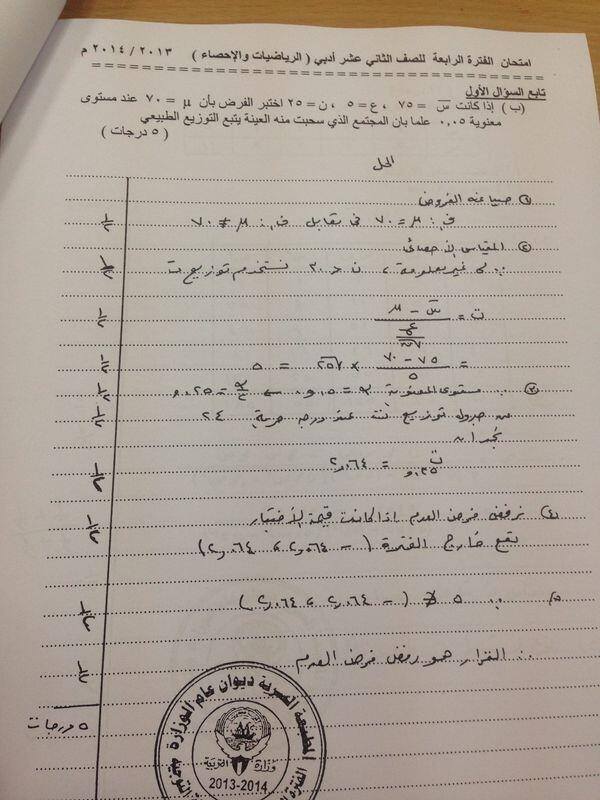 امتحان الفترة الرابعة للصف الثاني عشر أدبي ( الرياضيات والإحصاء ) ٢٠١٣ / ٢٠١٤ م
تابع السؤال الأول
(ب) إذا كانت س̄ = ٧٥ ، ع = ٥ ، ن = ٢٥ اختبر الفرض بأن μ = ٧٠ عند مستوى
معنوية ٠,٠٥ علما بان المجتمع الذي سحبت منه العينة يتبع التوزيع الطبيعي
( ٥ درجات )
الحل
① صياغة الفروض
ف. : μ = ٧٠ في مقابل ف₁ : μ ≠ ٧٠ ½
② المقياس الإحصائي
∵ غير معلومة ، ن < ٣٠ نستخدم توزيع ت ½
ت = (س̄ - μ) / (ع / √ن) ½
= (٧٥ - ٧٠) / ٥ × √٢٥ = ٥ ½
③ ∵ مستوى المعنوية α = ٠,٠٥ ← α/٢ = ٠,٠٢٥ ½
من جدول توزيع ت عند درجة حرية ٢٤ ½
نجد أن
ت ٠,٠٢٥ = ٢,٠٦٤ ½
④ نرفض فرض العدم إذا كانت قيمة الاختبار ½
تقع خارج الفترة ( - ٢,٠٦٤ ، ٢,٠٦٤ )
⑤ ∵ ٥ ∉ ( - ٢,٠٦٤ ، ٢,٠٦٤ ) ½
∴ القرار هو رفض فرض العدم ½
٥ درجات
المطبعة السرية ديوان عام الوزارة
وزارة التربية
2013-2014